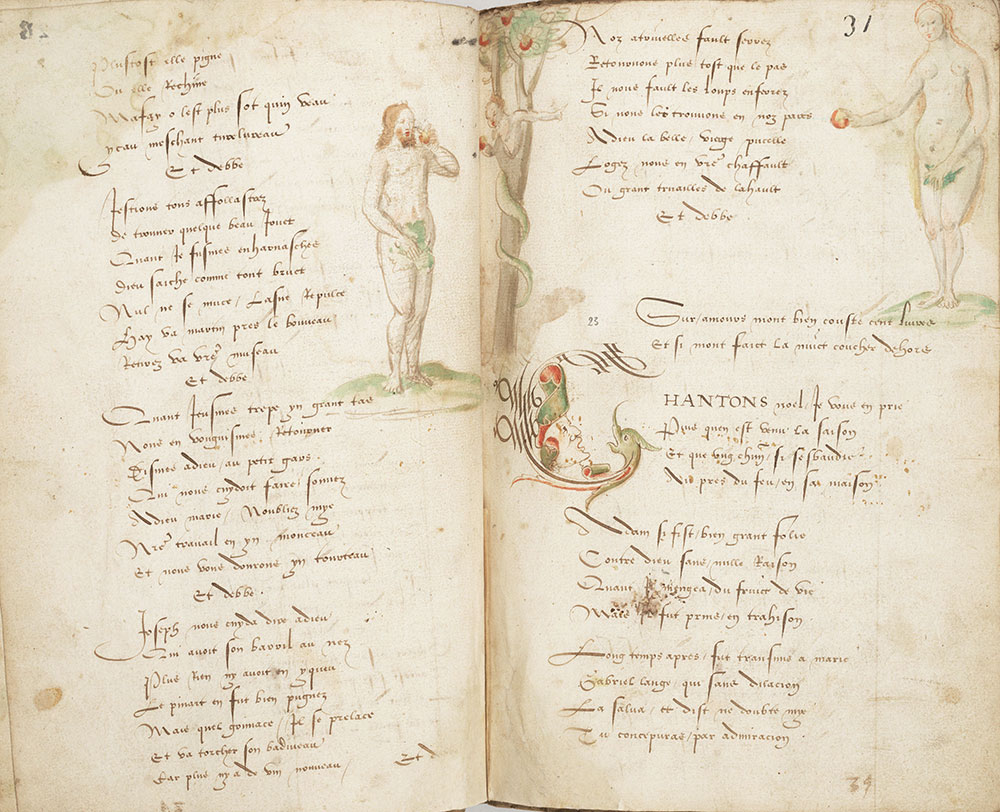 Plustost elle pigne
Ou elle Rechine
Mafay o lest plus sot quin veau
yceau meschant turelureau
Et debbe
Jestions tous affollastrez
de trouver quelque beau Jouet
Quant Je fusmes enharnaschez
dieu saiche comme tout bruet
Nul ne se muce / Lasne Repulce
Hay va martin pres le bouveau
Retirez va vre museau
Et debbe
Quant Jeusmes trepe yn grant tas
Nous en vouguismes / Retourner
Dismes adieu / au petit gars
Qui nous cuydoit faire / sonnez
Adieu marie / Noubliez mye
Nre travail en yn monceau
Et nous vous donrons yn tourteau
Et debbe
Joseph nous cuyda dire adieu
Qui avoit son barril au nez
Plus Rien ny avoit en yqueu
Le pinart en fut bien pugnez
Mais quel goinnace / Il se prelace
Et va torcher son badiveau
Car plus ny a de vin nouveau
Et d
31
Noz atouelles fault serrez
Retournons plus tost que le pas
Il nous fault les loups enserrez
Si nous les trouvons en noz pars
Adieu la belle / vierge pucelle
Logez nous en vre chaffault
Ou grant truailles de lahault
Et debbe
23
Sur / amours mont bien couste cent livres
Et si mont faict la nuict coucher dehors
CHANTONS noel / Je vous en prie
Puis quen est venu la saison
Et que ung chun / si sesbaudie
Au pres du feu / en sa maison
Adam si fist / bien grant folie
Contre dieu sans / nulle Raison
Quant Il mengea / du fruict de vie
Mais Il fut prins / en trahison
Long temps apres / fut transmis a marie
Gabriel lange / qui sans dilacion
La salua / et dist ne doubte mye
Tu concepuras / par admiracion
34